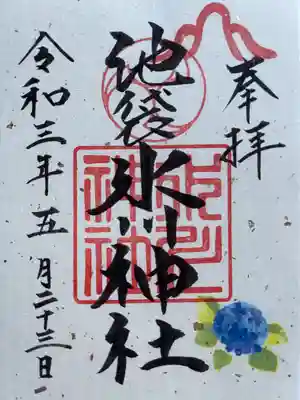 奉拝
池袋氷川神社
令和三年五月二十三日
氷川
神社